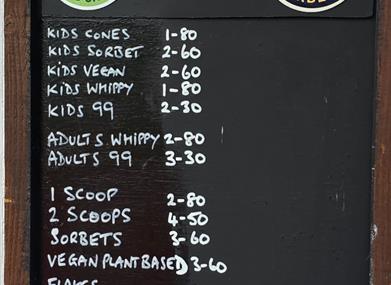 KIDS CONES 1-80
KIDS SORBET 2-60
KIDS VEGAN 2-60
KIDS WHIPPY 1-80
KIDS 99 2-30
ADULTS WHIPPY 2-80
ADULTS 99 3-30
1 SCOOP 2-80
2 SCOOPS 4-50
SORBETS 3-60
VEGAN PLANT BASED 3-60
FLAKES